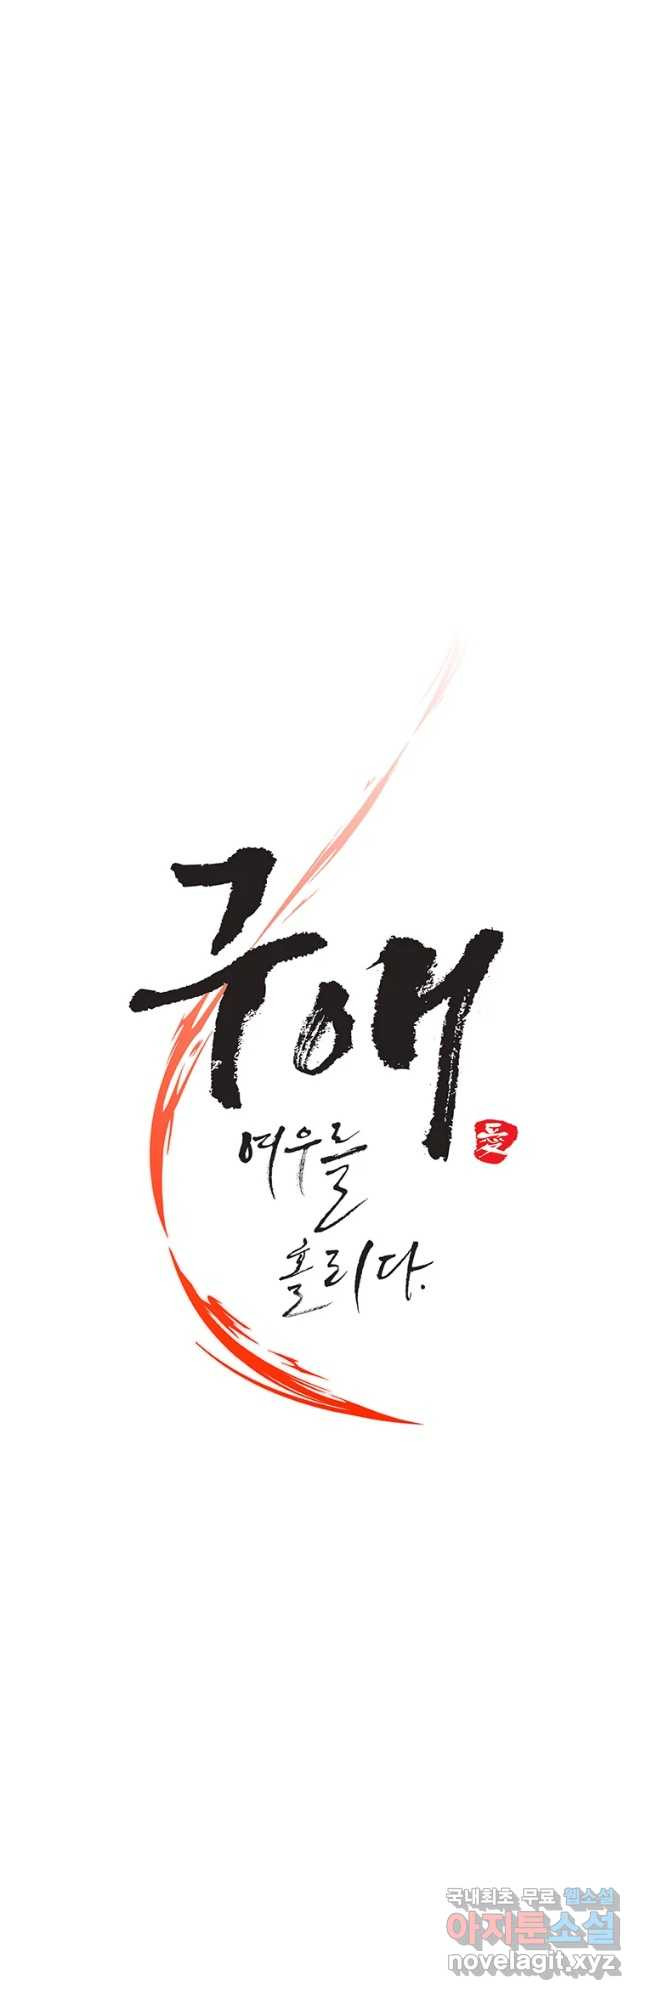 구애
愛
여우를
홀리다.
국내최초 무료 웹소설
아지툰소설
novelagit.xyz